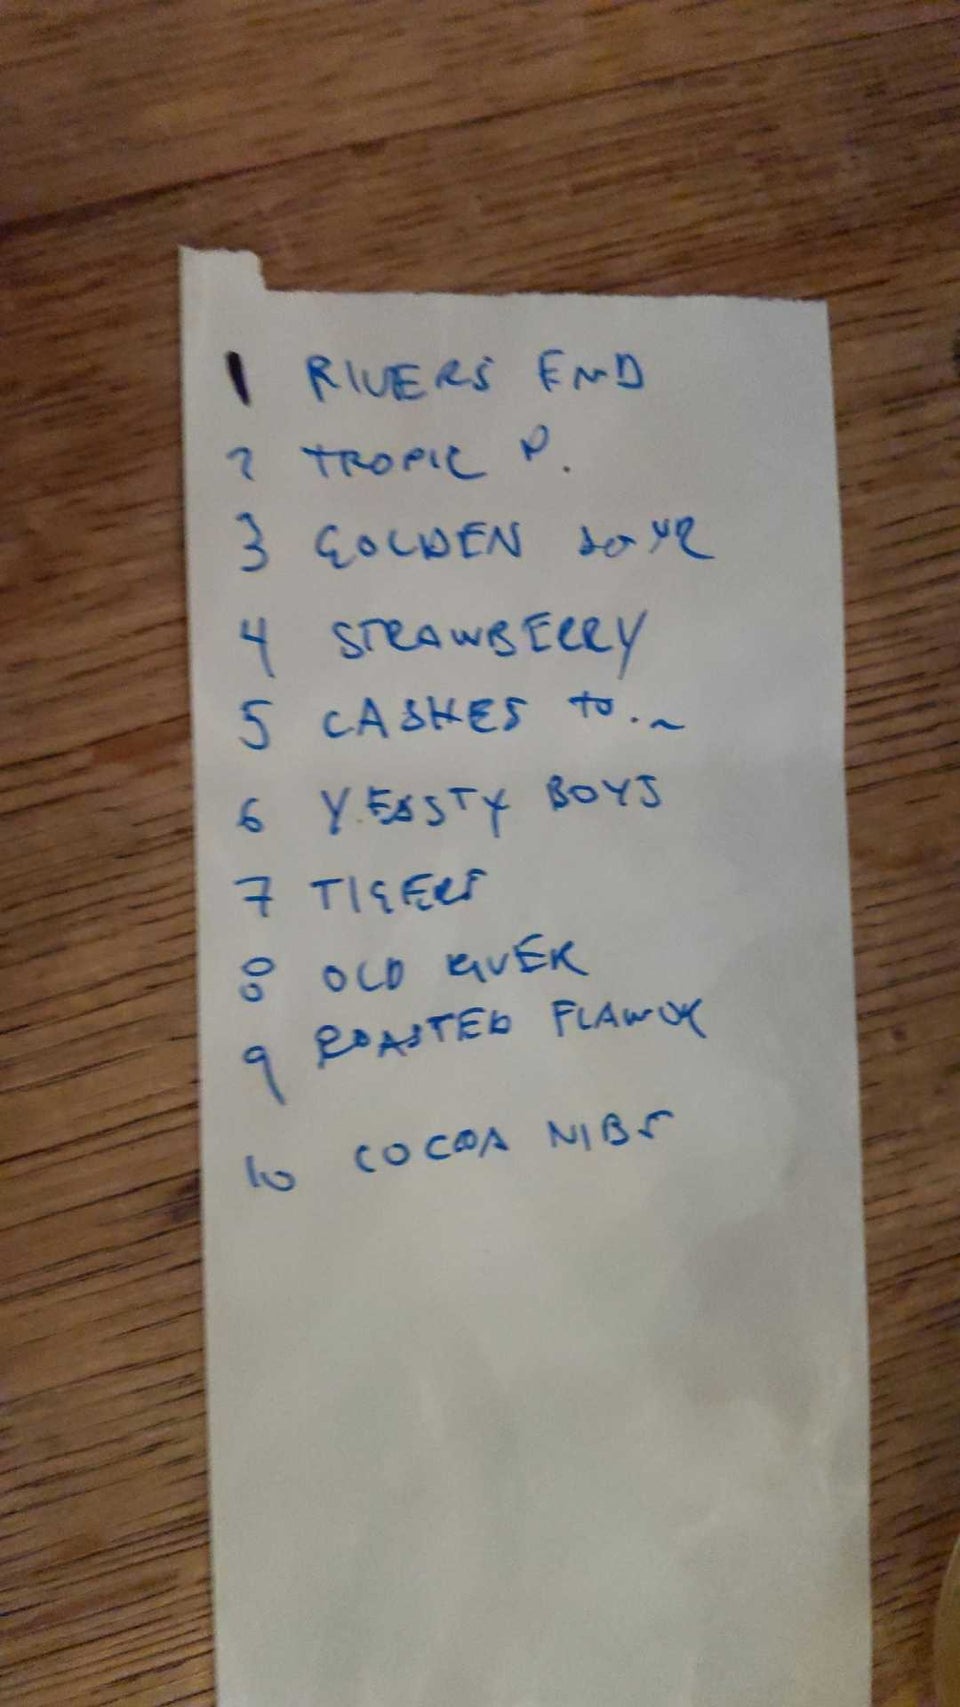 1 RIVERS END
2 TROPIC P.
3 GOLDEN SOUR
4 STRAWBERRY
5 CASHES to
6 YEASTY BOYS
7 TIGERS
8 OLD RIVER
9 ROASTED
10 COCOA NIBS